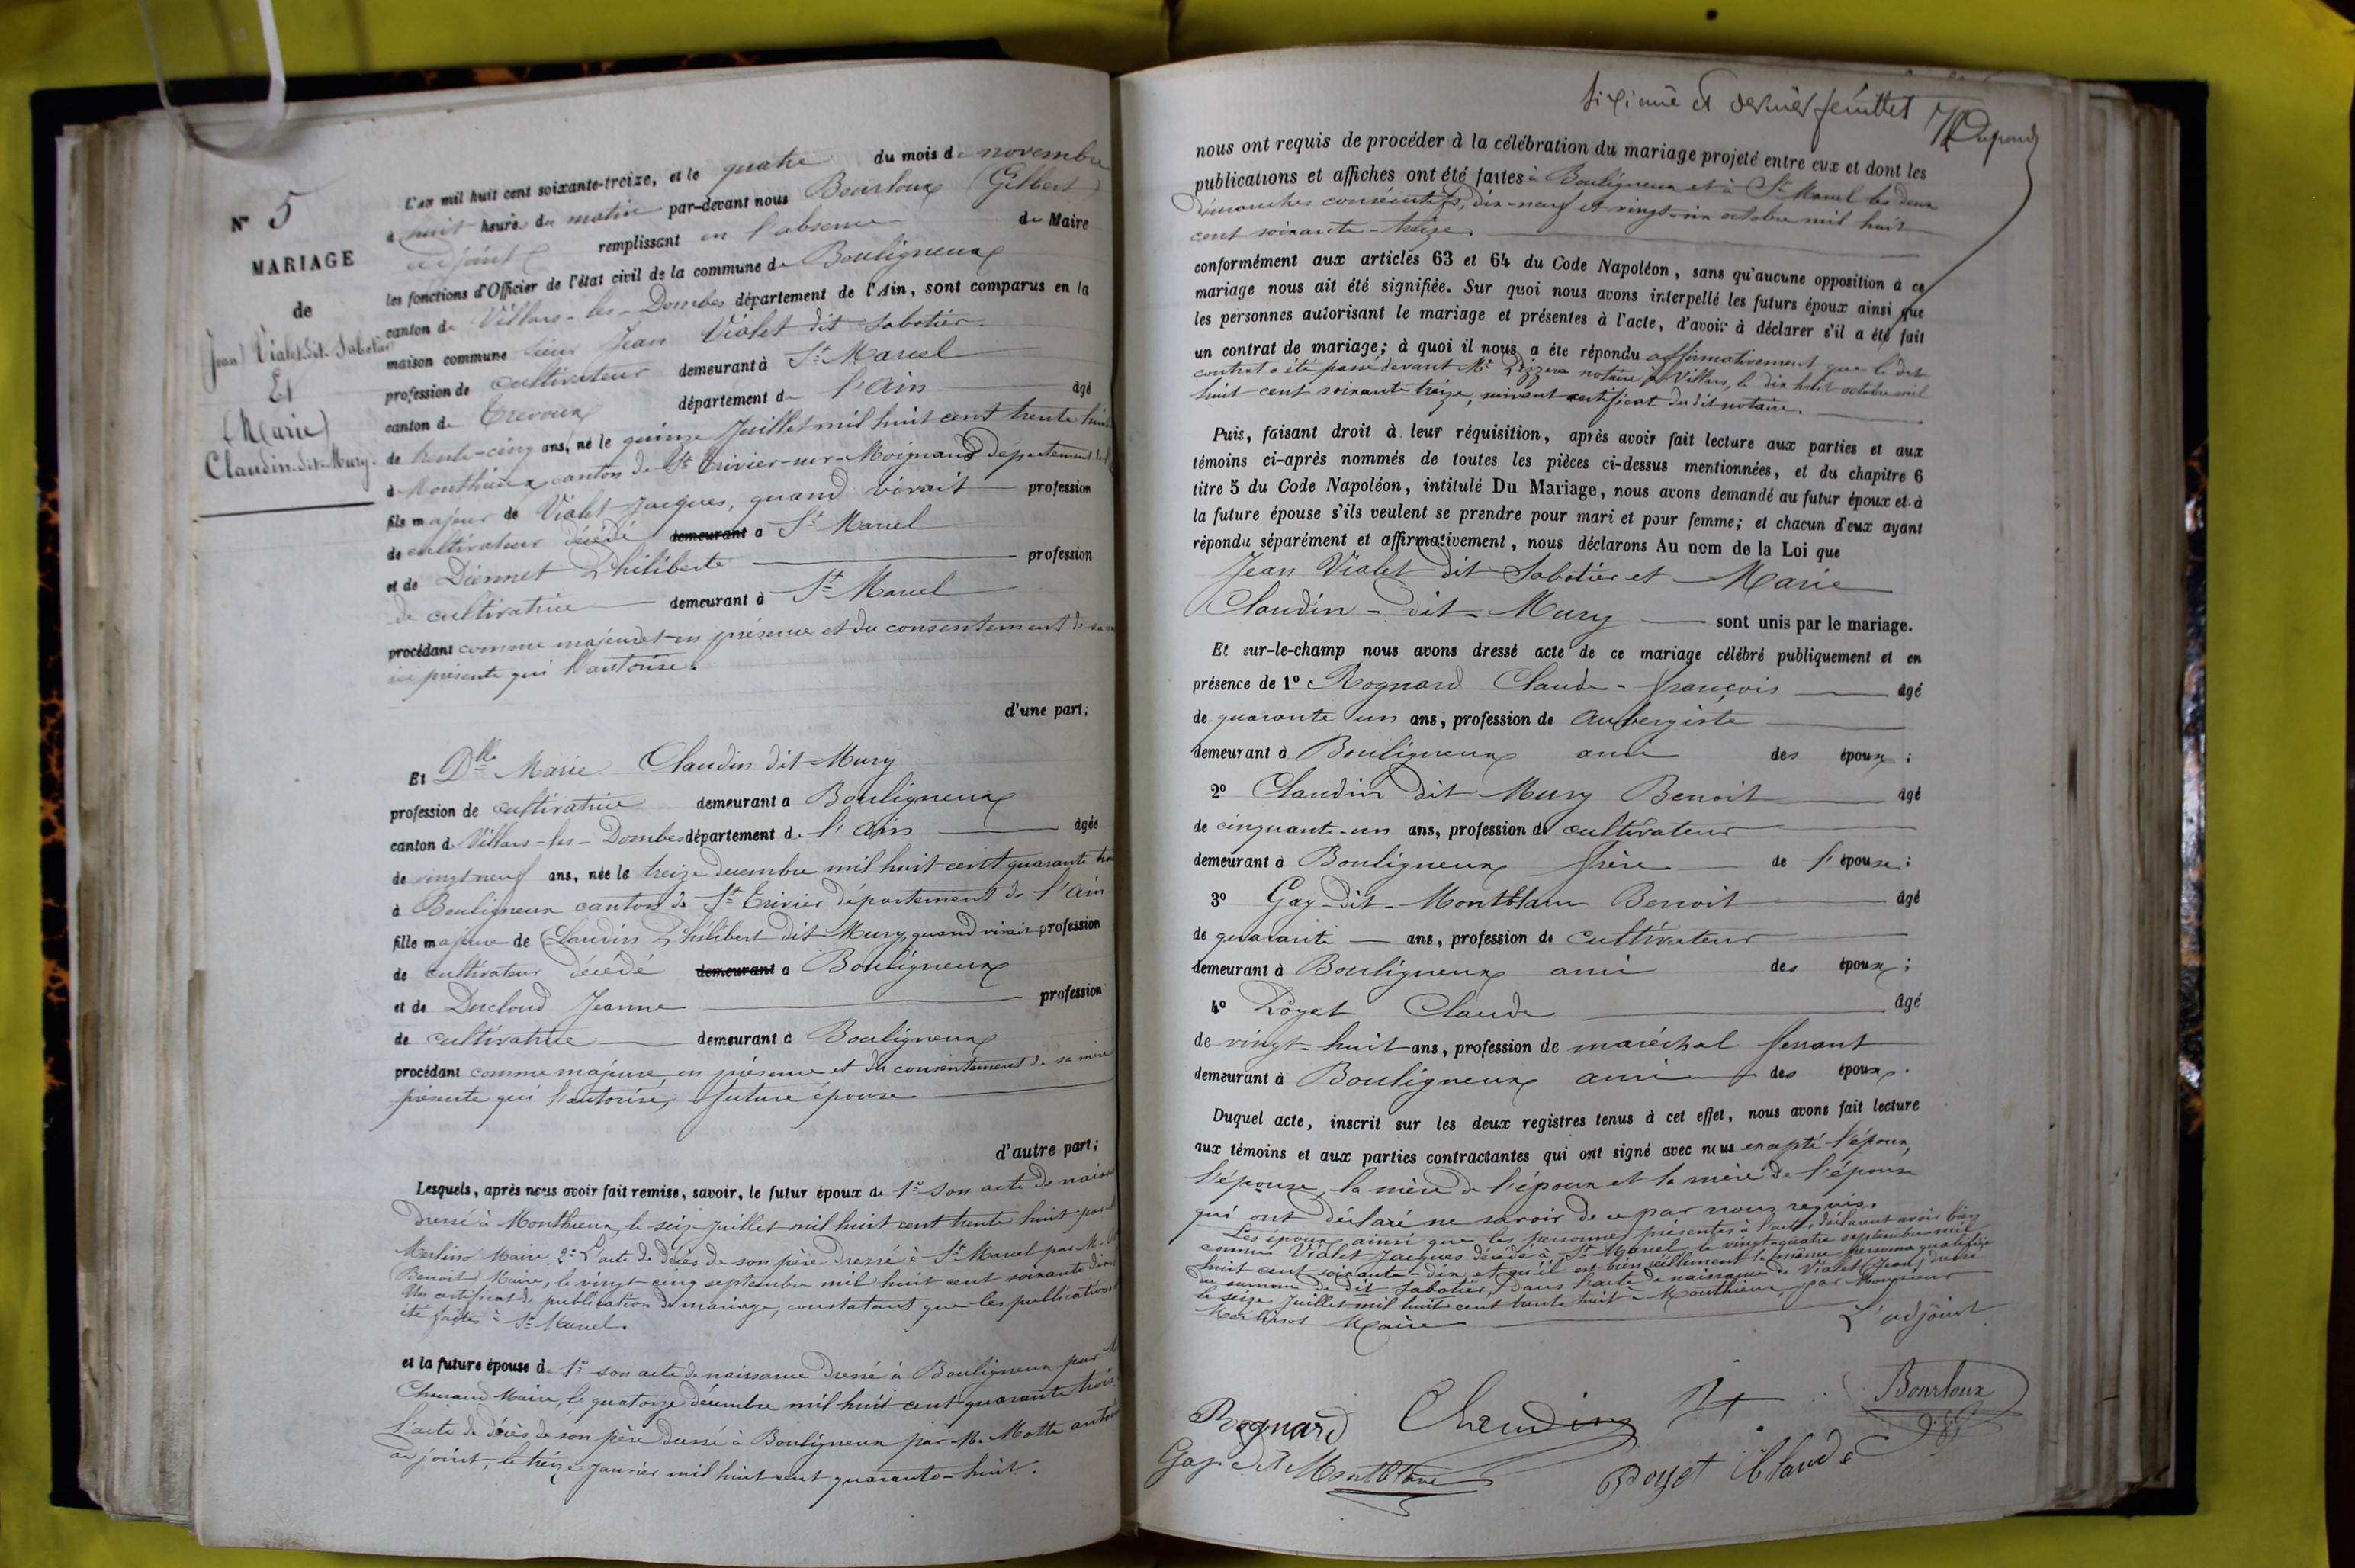 N° 5
MARIAGE
de
Jean Vialet dit Sabotier
Et
(Marie)
Claudin-dit-Mury.
L'an mil huit cent soixante-treize, et le quatre du mois de novembre
à huit heure du matin par-devant nous Bourloux (Gilbert)
adjoint remplissant en l'absence du Maire
les fonctions d'Officier de l'état civil de la commune de Bouligneux
canton de Villars-les-Dombes département de l'Ain, sont comparus en la
maison commune sieur Jean Vialet dit Sabotier.
profession de cultivateur demeurant à St Marcel
canton de Trevoux département de l'Ain âgé
de trente-cinq ans, né le quinze Juillet mil huit cent trente huit
à Monthieux canton de St Trivier-sur-Moignans département de
fils majeur de Vialet Jacques, quand vivait profession
de cultivateur décédé demeurant a St Marcel
et de Diennet Philiberte profession
de cultivatrice demeurant à St Marcel
procédant comme majeur et en présence et du consentement de sa
présente qui l'autorise.
d'une part;
Et Dlle Marie Claudin dit Mury
profession de cultivatrice demeurant a Bouligneux
canton d Villars-les-Dombes département de l'Ain âgée
de vingt neuf ans, née le treize decembre mil huit cent quarante
à Bouligneux canton de St Trivier département de l'Ain
fille majeure de Claudin Philibert dit Mury, quand vivait profession
de cultivateur décédé demeurant a Bouligneux
et de Ducloud Jeanne profession
de cultivatrice demeurant à Bouligneux
procédant comme majeure en présence et du consentement de sa mère
présente qui l'autorise, future épouse
d'autre part;
Lesquels, après nous avoir fait remise, savoir, le futur époux de 1° son acte de
dressé à Monthieux le seize juillet mil huit cent trente huit par
Merlino Maire 2° L'acte de décès de son père dressé à St Marcel par M.
Benoit Maire, le vingt-cinq septembre mil huit cent soixante dix
Un certificat de publication de mariage, constatant que les publications
été faites à St Marcel.
et la future épouse d 1° son acte de naissance dressé à Bouligneux par
Maire, le quatorze décembre mil huit cent quarante trois
L'acte de décès de son père dressé à Bouligneux par M. Motte
adjoint, le treize janvier mil huit cent quarante-huit.
sixième et dernier feuillet
nous ont requis de procéder à la célébration du mariage projeté entre eux et dont les
publications et affiches ont été faites à Bouligneux et à St Marcel les deux
dimanches consécutifs, dix-neuf et vingt-six octobre mil huit
cent soixante-treize.
conformément aux articles 63 et 64 du Code Napoléon, sans qu'aucune opposition à ce
mariage nous ait été signifiée. Sur quoi nous avons interpellé les futurs époux ainsi que
les personnes autorisant le mariage et présentes à l'acte, d'avoir à déclarer s'il a été fait
un contrat de mariage; à quoi il nous a été répondu affirmativement que le dit
contrat a été passé devant Me notaire à Villars, le dix huit octobre mil
huit cent soixante treize, suivant certificat du dit notaire.
Puis, faisant droit à leur réquisition, après avoir fait lecture aux parties et aux
témoins ci-après nommés de toutes les pièces ci-dessus mentionnées, et du chapitre 6
titre 5 du Code Napoléon, intitulé Du Mariage, nous avons demandé au futur époux et à
la future épouse s'ils veulent se prendre pour mari et pour femme; et chacun d'eux ayant
répondu séparément et affirmativement, nous déclarons Au nom de la Loi que
Jean Vialet dit Sabotier et Marie
Claudin-dit-Mury sont unis par le mariage.
Et sur-le-champ nous avons dressé acte de ce mariage célébré publiquement et en
présence de 1° Rognard Claude-françois âgé
de quarante un ans, profession de Aubergiste
demeurant à Bouligneux ami des époux;
2° Claudin dit Mury Benoit âgé
de cinquante-un ans, profession de cultivateur
demeurant à Bouligneux frère de l'épouse;
3° Gay-dit-Montblanc Benoit âgé
de quarante ans, profession de cultivateur
demeurant à Bouligneux ami des époux;
4° Poyet Claude âgé
de vingt-huit ans, profession de maréchal ferrant
demeurant à Bouligneux ami des époux.
Duquel acte, inscrit sur les deux registres tenus à cet effet, nous avons fait lecture
aux témoins et aux parties contractantes qui ont signé avec nous excepté l'époux,
l'épouse, la mère de l'époux et la mère de l'épouse
qui ont déclaré ne savoir de ce par nous requis.
Les époux ainsi que les personnes présentes à l'acte, déclarent avoir bien
connu Vialet Jacques décédé à St Marcel le vingt-quatre septembre mil
huit cent soixante-dix, et qu'il est bien réellement la même personne qualifiée
du surnom de dit Sabotier, dans l'acte de naissance de Vialet (Jean) dressé
le seize Juillet mil huit cent trente huit à Monthieux, par Monsieur
Merlino Maire
L'adjoint
Rognard Claudin Bourloux
Gay dit Montblanc Poyet Claude